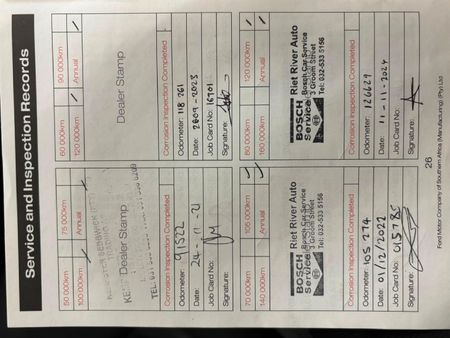 Service and Inspection Records
50 000km 75 000km
100 000km Annual
Dealer Stamp
Corrosion Inspection Completed
Odometer: 91522
Date: 24-11-21
Job Card No:
Signature:
60 000km 90 000km
120 000km Annual
Dealer Stamp
Corrosion Inspection Completed
Odometer: 118 761
Date: 2809-2023
Job Card No: 16701
Signature:
70 000km 105 000km
140 000km Annual
BOSCH Service
Riet River Auto
Bosch Car Service
3 Groom Street
Tel: 032-533 5156
Corrosion Inspection Completed
Odometer: 105 274
Date: 01/12/2022
Job Card No: 015785
Signature:
80 000km 120 000km
160 000km Annual
BOSCH Service
Riet River Auto
Bosch Car Service
3 Groom Street
Tel: 032-533 5156
Corrosion Inspection Completed
Odometer: 126629
Date: 11-11-2024
Job Card No:
Signature:
26
Ford Motor Company of Southern Africa (Manufacturing) (Pty) Ltd